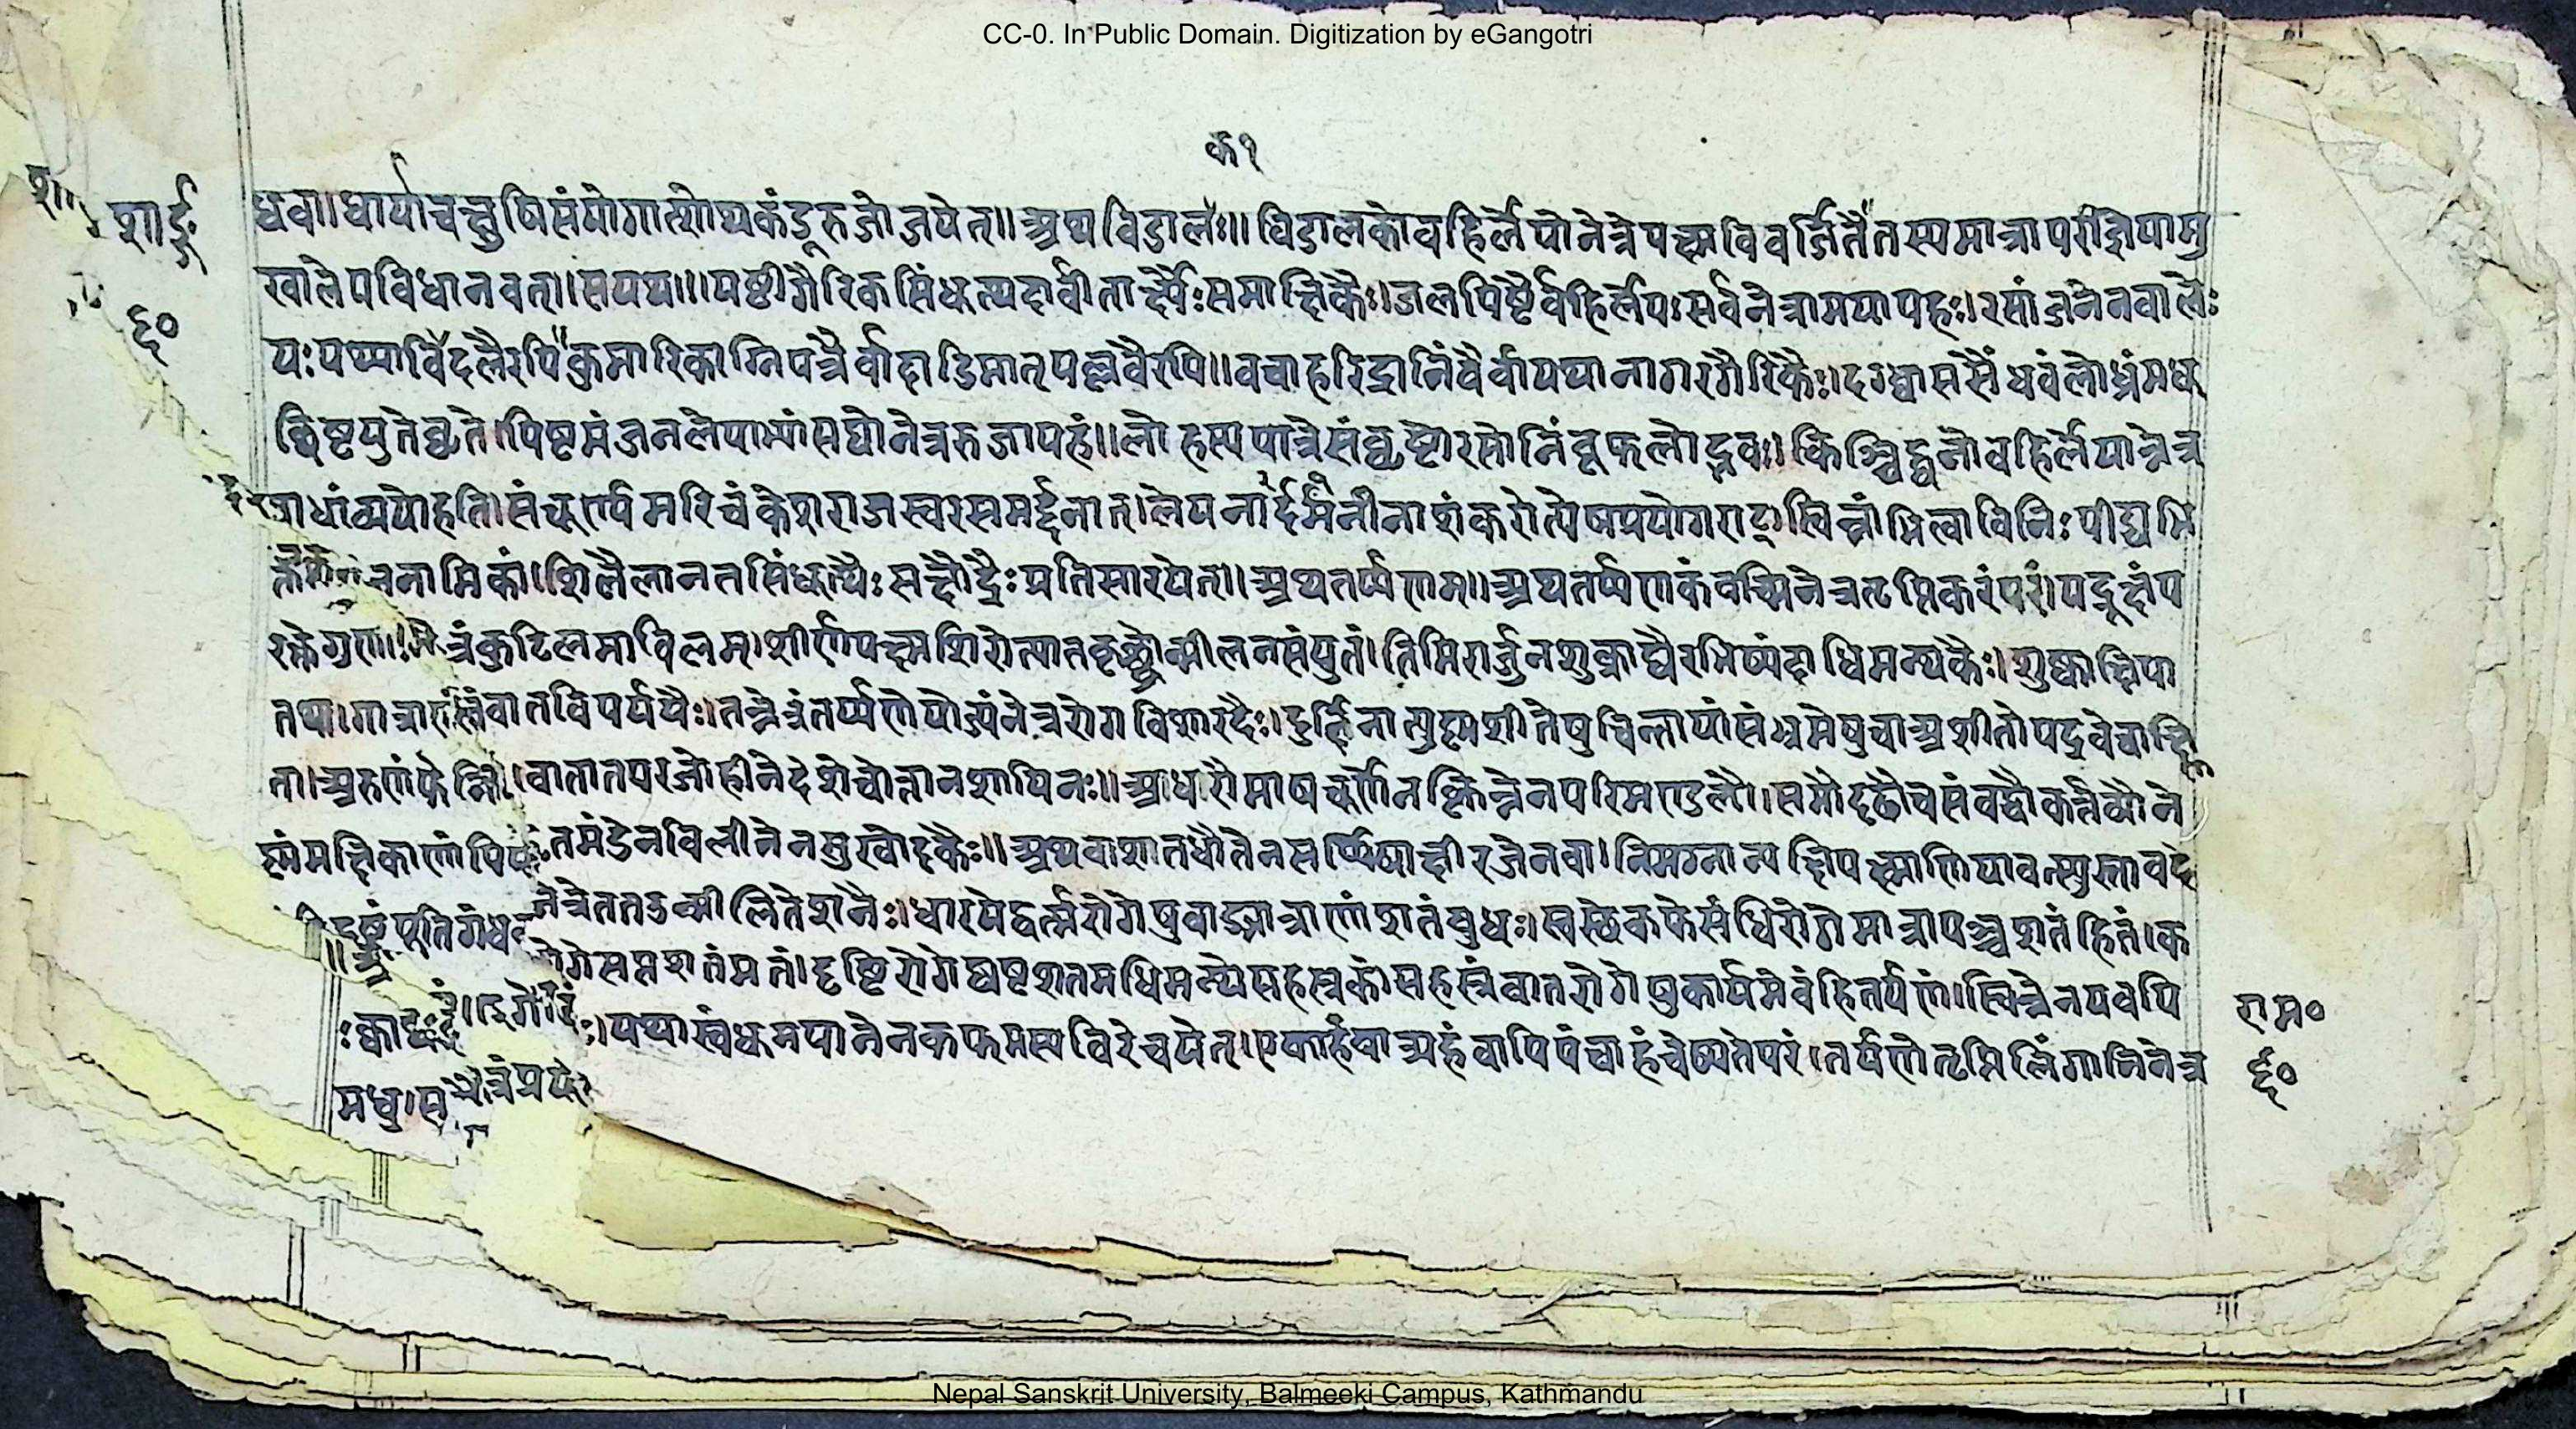 CC-0. In Public Domain. Digitization by eGangotri
क१
शार्ङ्ग
६०
ध्रवा।धार्याचचक्षुषिसंयोगात्शोथकंडूरुजोजयेत्॥अथविडालः॥विडालकोवहिर्लेपोनेत्रेपक्ष्मविवर्जितेतस्यमात्रापरीज्ञेयामु
खालेपविधानवत्।सयथा॥यष्टीगैरिकसिंधूत्थदार्वीतार्क्ष्यैःसमाक्षिकैः।जलपिष्टैर्वहिर्लेपःसर्वनेत्रामयापहः।रसांजनेनवालेः
यःपथ्याविदलैरपिकुमारिकाग्निपत्रैर्वादाडिमात्पल्लवैरपि॥वचाहरिद्रानिंवैर्वायथानागरगैरिकैः।दग्ध्वाससैंधवंलोध्रंमधू
छिष्टयुतेघृते।पिष्टमंजनलेपाभ्यांसद्योनेत्ररुजापहं॥लोहस्यपात्रेसंघृष्टोरसोनिंवूफलोद्भवः।किञ्चिद्घनोवहिर्लेपान्नेत्र
वाधांव्यपोहति।संचूर्ण्यमरिचंकेशराजस्वरसमर्द्दनात्।लेपनार्दर्मनीनाशंकरोत्येषप्रयोगराट्।स्विन्नांभित्वाविनिःपीड्यभि
नामिकां।शिलैलानतसिंधूत्थैःसक्षौद्रैःप्रतिसारयेत्॥अथतर्प्पणम्॥अथतर्प्पणकंवच्मिनेत्रतृप्तिकरंपरं।यद्रूक्षंप
कुटिलमाविलम्।शीर्णपक्ष्मशिरोत्पातकृछ्रोन्मीलनसंयुतं।तिमिरार्जुनशुक्राद्यैरभिष्यंदाधिमन्थकैः।शुष्काक्षिपा
वातविपर्ययैः।तन्नेत्रंतर्प्पणेयोज्यंनेत्ररोगविशारदैः।दुर्द्दिनात्युष्मशीतेषुचिन्तायांसंभ्रमेषुचाअशीतोपद्रवेचाक्ष्णि
वातातपरजोहीनेदेशेचोत्तानशायिनः॥आधारौमाषचूर्णेनक्लिन्नेनपरिमण्डलौ॥समौदृढौचसंवद्धौकर्तव्यौने
तमंडेनविलीनेनसुखोदकैः॥अथवाशतधौतेनसर्प्पिषाक्षीरजेनवा।निमग्नान्यक्षिपक्ष्माणियावत्स्युस्तावदे
नेत्रेततउन्मीलितेशनैः।धारयेद्वर्त्मरोगेषुवाङ्मात्राणांशतंवुधः।स्वस्थेकफेसंधिरोगेमात्रापञ्चशतंहितं।क
रोगेसप्तशतंमतं।दृष्टिरोगेष्वष्टशतमधिमन्थेसहस्रकं।सहस्रंवातरोगेषुकार्यमेवंहितर्पणं।स्विन्नेनयवपि
यथास्वंधूमपानेनकफमस्यविरेचयेत्।एकाहंवात्र्यहंवापिपंचाहंचेष्यतेपरं।तर्पणेतृप्तिलिंगानिनेत्र
मधु।स
राम०
६०
Nepal Sanskrit University, Balmeeki Campus, Kathmandu